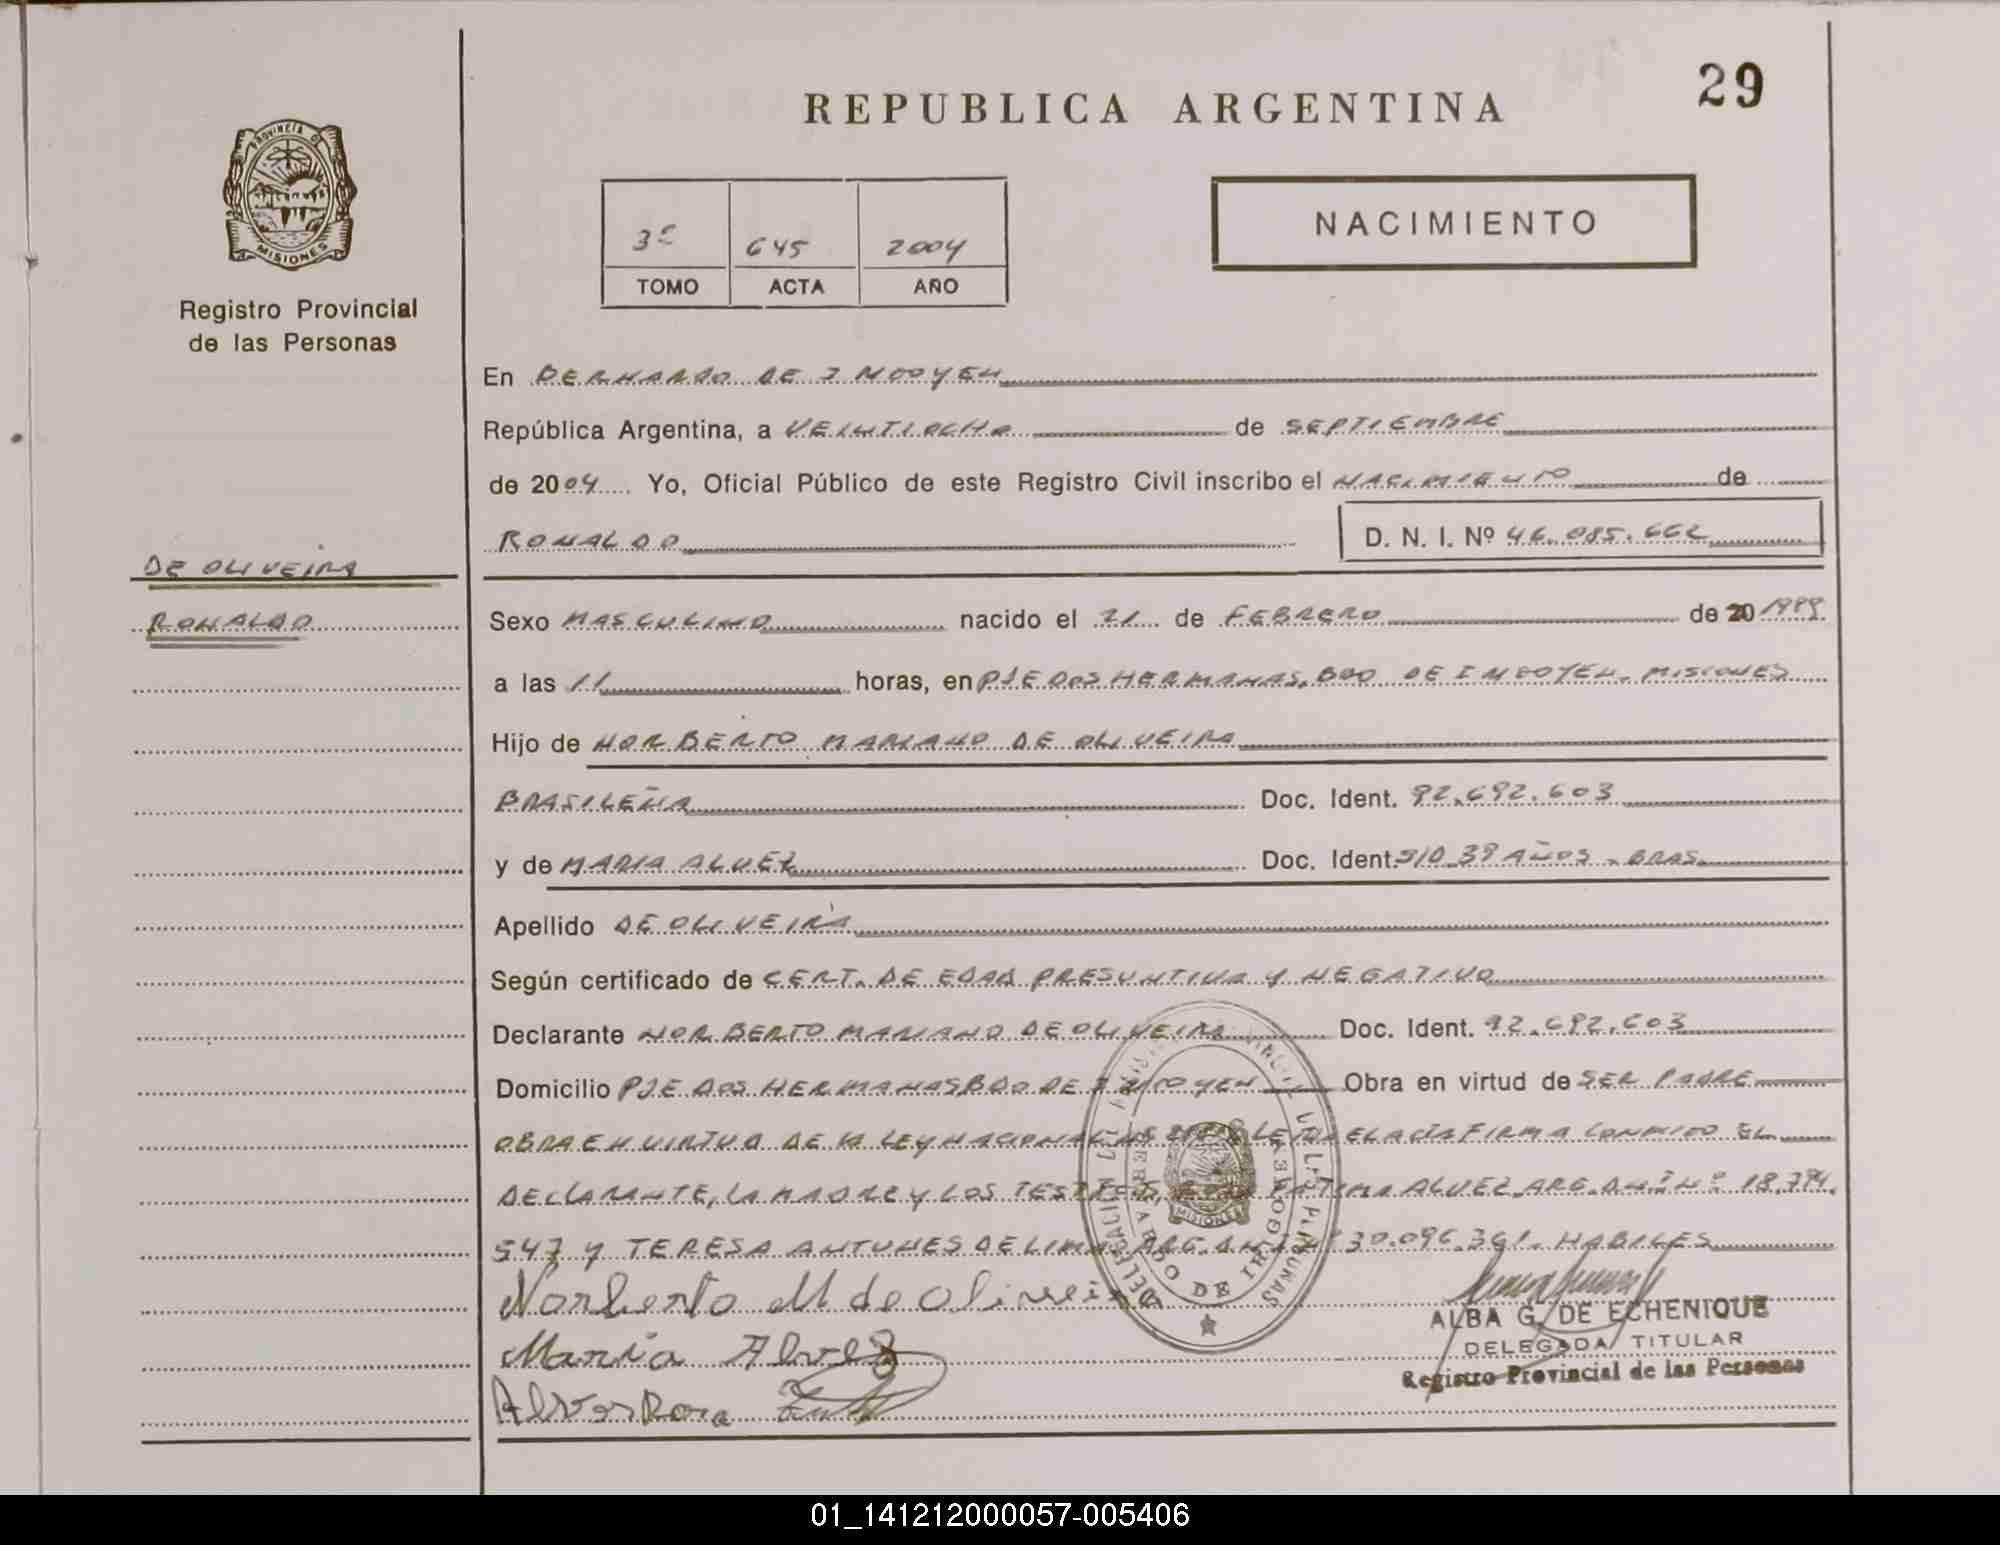 29
REPUBLICA ARGENTINA
PROVINCIA DE
MISIONES
Registro Provincial
de las Personas
NACIMIENTO
3º 645 2004
TOMO ACTA AÑO
En BERNARDO DE IRIGOYEN
República Argentina, a VEINTIOCHO de SEPTIEMBRE
de 2004 Yo, Oficial Público de este Registro Civil inscribo el NACIMIENTO de
RONALDO D. N. I. Nº 46.085.662
DE OLIVEIRA
RONALDO
Sexo MASCULINO nacido el 21 de FEBRERO de 20 1989
a las 11 horas, en PJE DOS HERMANAS, BDO DE IRIGOYEN. MISIONES
Hijo de NORBERTO MARIANO DE OLIVEIRA
BRASILEÑA Doc. Ident. 92.692.603
y de MARIA ALVEZ Doc. Ident. S/D 39 AÑOS - BRAS.
Apellido DE OLIVEIRA
Según certificado de CERT. DE EDAD PRESUNTIVA Y NEGATIVO
Declarante NORBERTO MARIANO DE OLIVEIRA Doc. Ident. 92.692.603
Domicilio PJE DOS HERMANAS BDO DE IRIGOYEN Obra en virtud de SER PADRE
OBRA EN VIRTUD DE LA LEY NACIONAL LEIDA EL ACTA FIRMA CONMIGO EL
DECLARANTE, LA MADRE Y LOS TESTIGOS FATIMA ALVEZ ARG. D.N.I Nº 18.794.
547 Y TERESA ANTUNES DE LIMA ARG. D.N.I Nº 30.096.361. HABILES
Norberto M de oliveira
Maria Alvez
Alves Rosa
DELEGACION BERNARDO DE IRIGOYEN
MISIONES
ALBA G. DE ECHENIQUE
DELEGADA TITULAR
Registro Provincial de las Personas
01_141212000057-005406